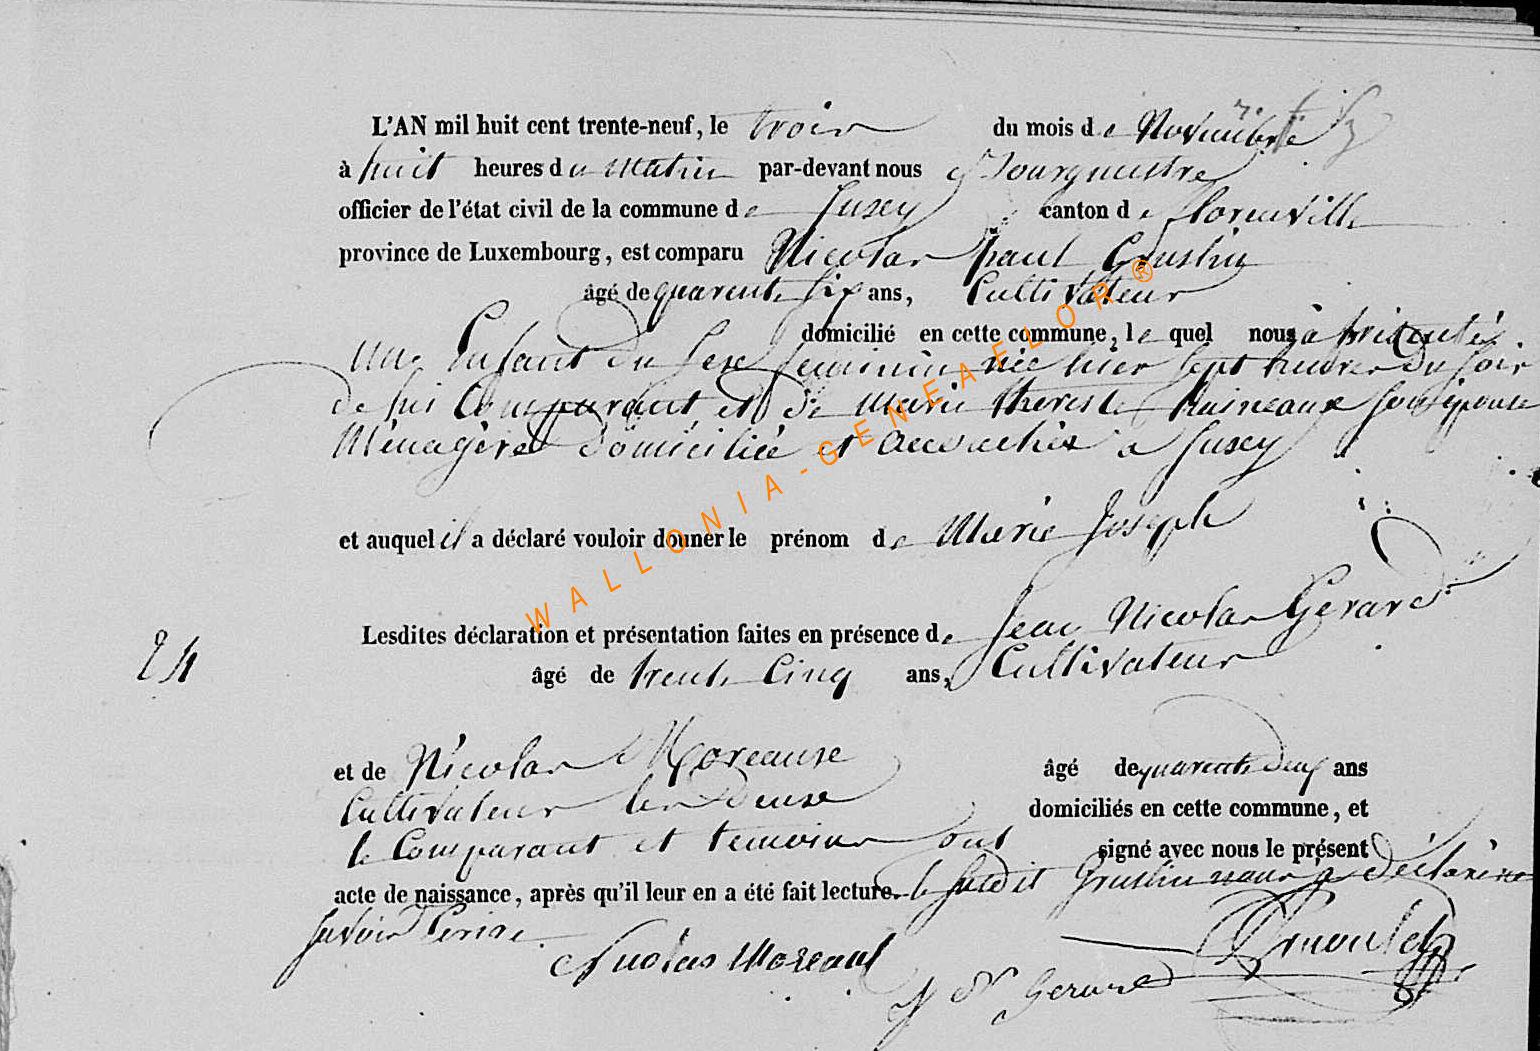 L'AN mil huit cent trente-neuf, le trois du mois de Novembre
à huit heures du Matin par-devant nous Bourgmestre
officier de l'état civil de la commune de Jusey canton de florenville
province de Luxembourg, est comparu Nicolas paul Gruslin
âgé de quarente Six ans, Cultivateur
domicilié en cette commune, le quel nous à présenté
un Enfant du Sexe feminin née hier Sept heures du Soir
de lui Comparant et de Marie therese son épouse
Ménagère domiciliée et à Jusey
et auquel il a déclaré vouloir donner le prénom de Marie Joseph
Lesdites déclaration et présentation faites en présence de Jean Nicolas Gerard
24
âgé de trente Cinq ans, Cultivateur
et de Nicolas Moreause âgé de quarente deux ans
Cultivateur les Deuse domiciliés en cette commune, et
le Comparant et temoins ont signé avec nous le présent
acte de naissance, après qu'il leur en a été fait lecture. le Susdit Gruslin nous a déclaré ne
Savoir Ecrire
Nicolas Moreaux
J N Gerard
WALLONIA-GENEAFLOR®